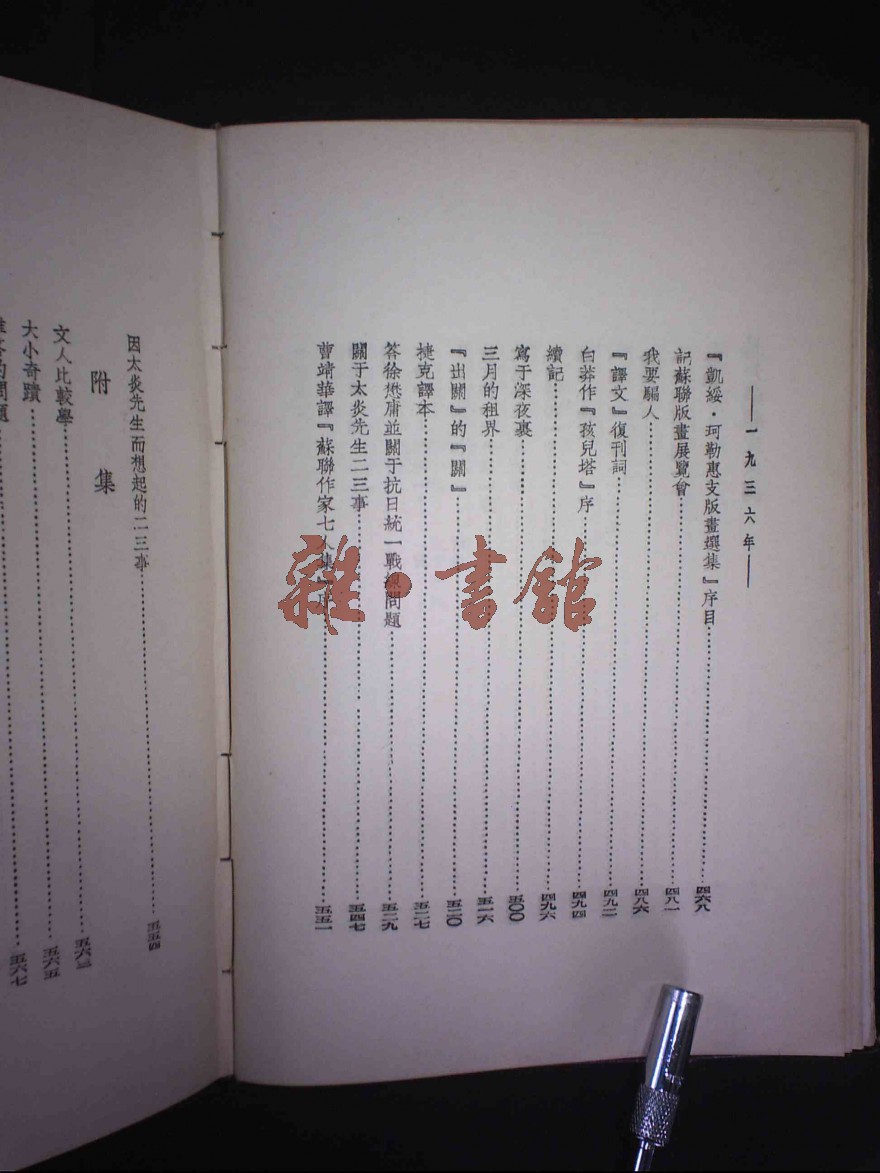 ——一九三六年——
『凱綏·珂勒惠支版畫選集』序目……四六八
記蘇聯版畫展覽會……四八一
我要騙人……四八六
『譯文』復刊詞……四九二
白莽作『孩兒塔』序……四九四
續記……四九六
寫于深夜裏……五〇〇
三月的租界……五一六
『出關』的『關』……五二〇
捷克譯本……五二七
答徐懋庸並關于抗日統一戰線問題……五二九
關于太炎先生二三事……五四七
曹靖華譯『蘇聯作家七人集』序……五五一
因太炎先生而想起的二三事……五五四
附集
文人比較學……五六三
大小奇蹟……五六五
的問題……五六七
雜·書館